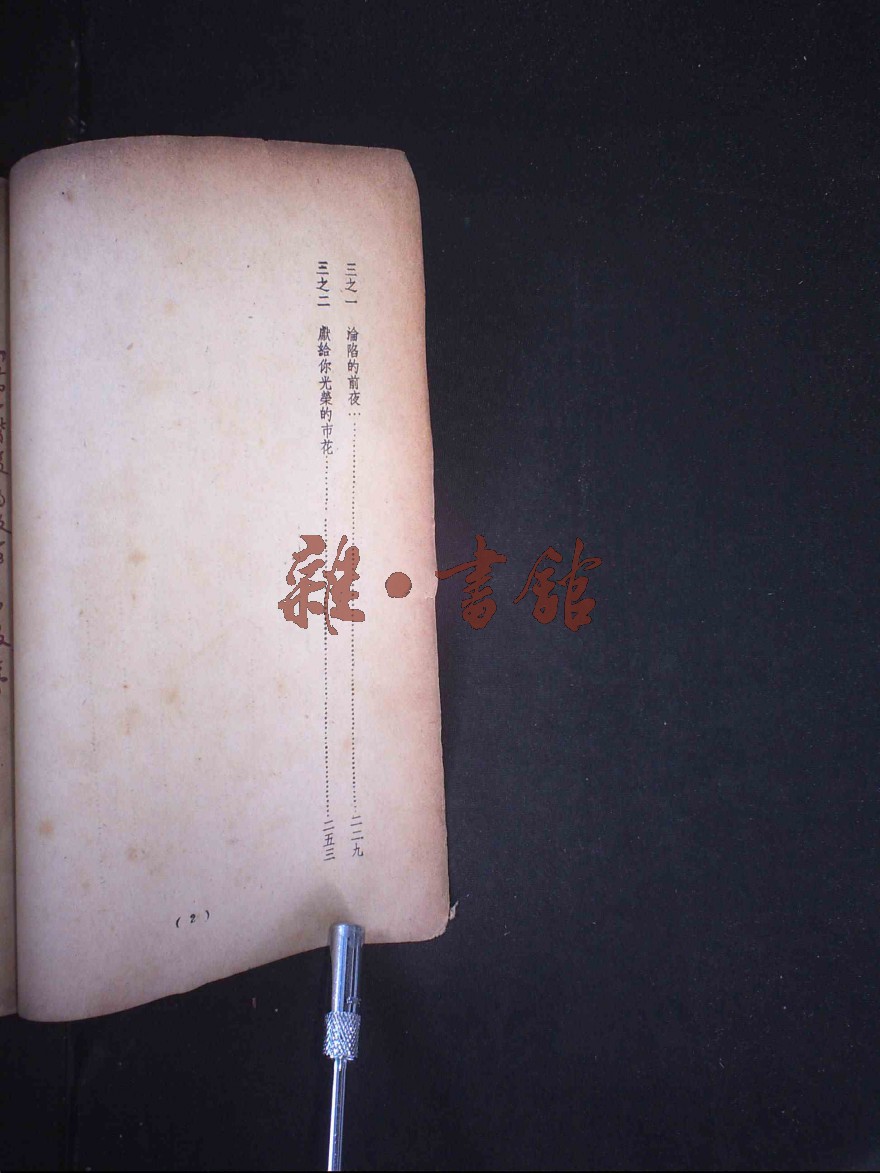 三之一　淪陷的前夜……二二九
三之二　獻給你光榮的市花……二五三
(2)
雜·書館